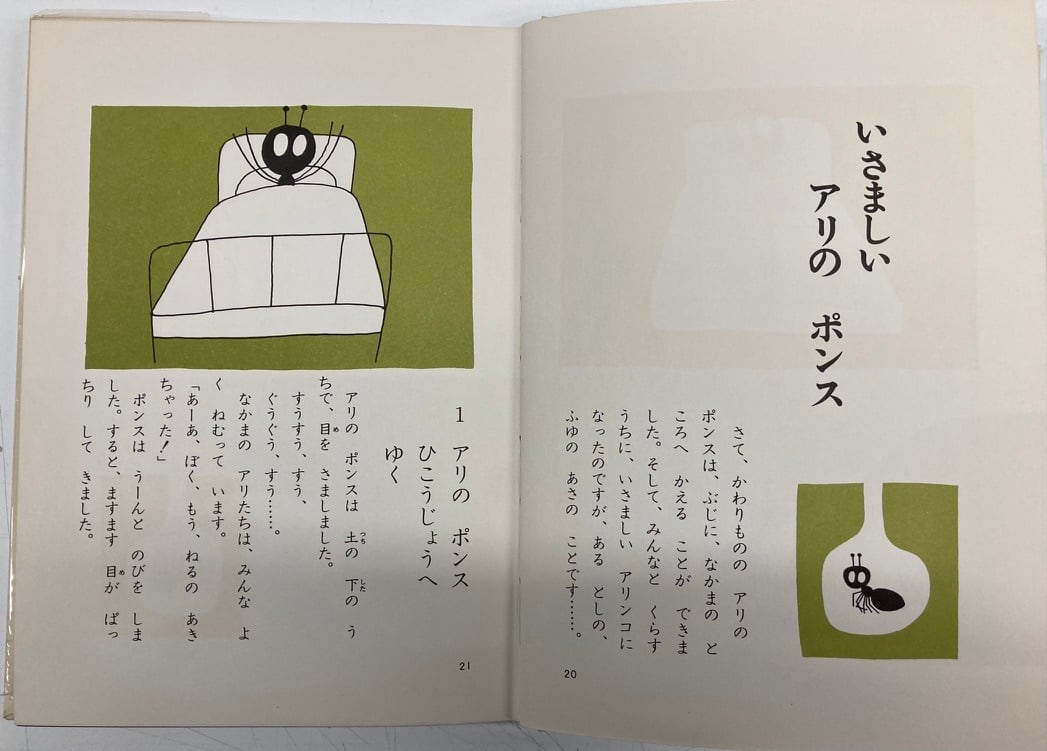 いさましい
アリの　ポンス
さて、かわりものの　アリの
ポンスは、ぶじに、なかまの　と
ころへ　かえる　ことが　できま
した。そして、みんなと　くらす
うちに、いさましい　アリンコに
なったのですが、ある　としの、
ふゆの　あさの　ことです……。
20
1　アリの　ポンス
ひこうじょうへ
ゆく
アリの　ポンスは　土の　下の　う
ちで、目を　さましました。
すうすう、すう、
ぐうぐう、すう……。
なかまの　アリたちは、みんな　よ
く　ねむって　います。
「あーあ、ぼく、もう、ねるの　あき
ちゃった！」
ポンスは　うーんと　のびを　しま
した。すると、ますます　目が　ぱっ
ちり　して　きました。
21